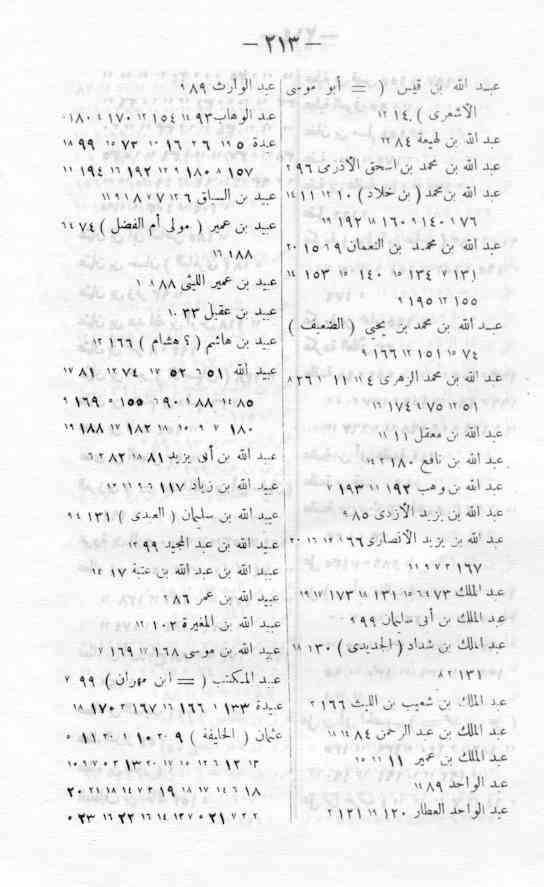 — ٢١٣ —
عبد الله بن قيس ( = أبو موسى
الأشعرى ) ١٤, ١٢
عبد الله بن لهيعة ٨٤ ١٢
عبد الله بن محمد بن اسحق الأذرى ٩٦ ٢
عبد الله بن محمد ( بن خلاد ) ١٠ ١٢ ١١ ١٤
٧٦ ٩ ١٤٠ ٩ ١٦٠ ١١ ١٩٢ ١٩
عبد الله بن محمد بن النعمان ٦٩ ١٥ ٢٠
٧١ ١٣ ١٣٤ ١٥ ١٤٠ ١٥ ١٥٣ ١٤
١٥٥ ١٢ ١٩٥ ٩
عبد الله بن محمد بن يحيى ( الضعيف )
٧٤ ١٥ ١٥١ ١٢ ١٦٦ ٩
عبد الله بن محمد الزهرى
٥١ ١٢ ٧٥ ٩ ١٧٤ ١٢
عبد الله بن معقل ١١ ١١
عبد الله بن نافع ١٨٠ ١٤
عبد الله بن وهب ١٩٢ ١١ ١٩٣ ٧
عبد الله بن يزيد الأزدى ٨٥ ٩
عبد الله بن يزيد الأنصارى ٦٦
١٦٧ ٢ ٧ ٩ ١١
عبد الملك ٧٣ ٤ ٦ ١٥ ١٣١ ١٨ ١٧٣ ١٧ ١٩
عبد الملك بن أبى سليمان ٩٩ ٩
عبد الملك بن شداد ( الجديدى ) ١٣٠ ١٨
١٣١ ٢ ٨
عبد الملك بن شعيب بن الليث ١٦٦ ٢
عبد الملك بن عبد الرحمن ٨٤ ١٤ ١٨
عبد الملك بن عمير ١١ ١١ ١٥
عبد الواحد ٨٩ ١٤
عبد الواحد العطار ١٢٠ ١٩ ١٢١ ٢
عبد الوارث ٨٩ ٩
عبد الوهاب ٩٣ ١٤ ١٥٤ ١٢ ١٧٠ ٤ ١٨٠ ٥
عبدة ٥ ١٩ ٦ ٢ ١٦ ١٠ ٧٣ ١٥ ٩٩ ١٨
١٥٧ ٨ ١٨٠ ٩ ١٢ ١٩٢ ١٦ ١٩٤ ١١
عبيد بن السباق ٦ ١٢ ٧ ٧ ٨ ٩ ١١
عبيد بن عمير ( مولى أم الفضل ) ٧٤ ٤ ٦
١٨٨ ١٦
عبيد بن عمير الليثى ٨٨ ٨ ١٠
عبيد بن عقيل ٣٣ ١٠
عبيد بن هاشم ( ؟ هشام ) ١٦٦ ١٢
عبيد الله ٥١ ٦ ٥٢ ١٧ ٧٤ ١٢ ٨١ ١٧
٨٥ ١٤ ٨٨ ٩ ٩٠ ٦ ١٥٥ ٥ ١٦٩ ٩
١٨٠ ٧ ٩ ١٠ ١٥ ١٨٢ ١٧ ١٨٨ ١٩
عبيد الله بن أبى يزيد ٨١ ١٨ ٨٢ ٢ ٦
عبيد الله بن زياد ١١٧ ٦ ٩ ١١ ١٢
عبيد الله بن سليمان ( العبدى ) ١٣١ ٤ ٩
عبيد الله بن عبد المجيد ٩٩ ١٢
عبيد الله بن عبد الله بن عتبة ١٧ ١٤
عبيد الله بن عمر ٨٦ ٢
عبيد الله بن المغيرة ١٠٢ ١٢
عبيد الله بن موسى ١٦٨ ١٧ ١٦٩ ٧
عبيد المكتب ( = ابن مهران ) ٩٩ ٧
عبيدة ١٣٣ ١ ١٦٦ ١٦ ١٦٧ ٢ ١٧٥ ١٨
عثمان ( الخليفة ) ٩ ٢٠ ١٠ ١ ٢٠ ١١ ٥
١٣ ١٢ ٦ ١٢ ١٥ ١٧ ٢٠ ١٣ ٢ ٥ ٧ ٩ ١٥
١٨ ٦ ١٤ ١٧ ١٨ ١٩ ٣ ٧ ١٤ ١٨ ٢١ ٢٠
٢ ٧ ٢ ٢١ ٥ ٧ ١٣ ١٤ ١٦ ٢٢ ١٦ ٢٣ ٥